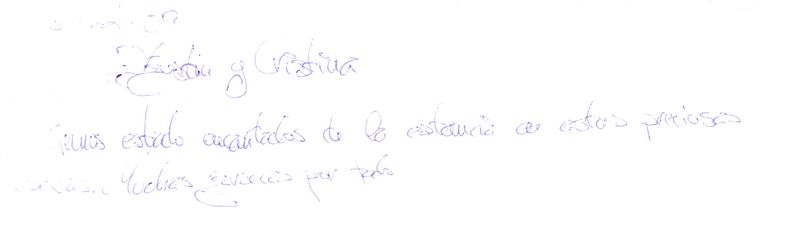 y Cristina
Hemos estado encantados de la estancia en estas preciosas
Muchas gracias por todo